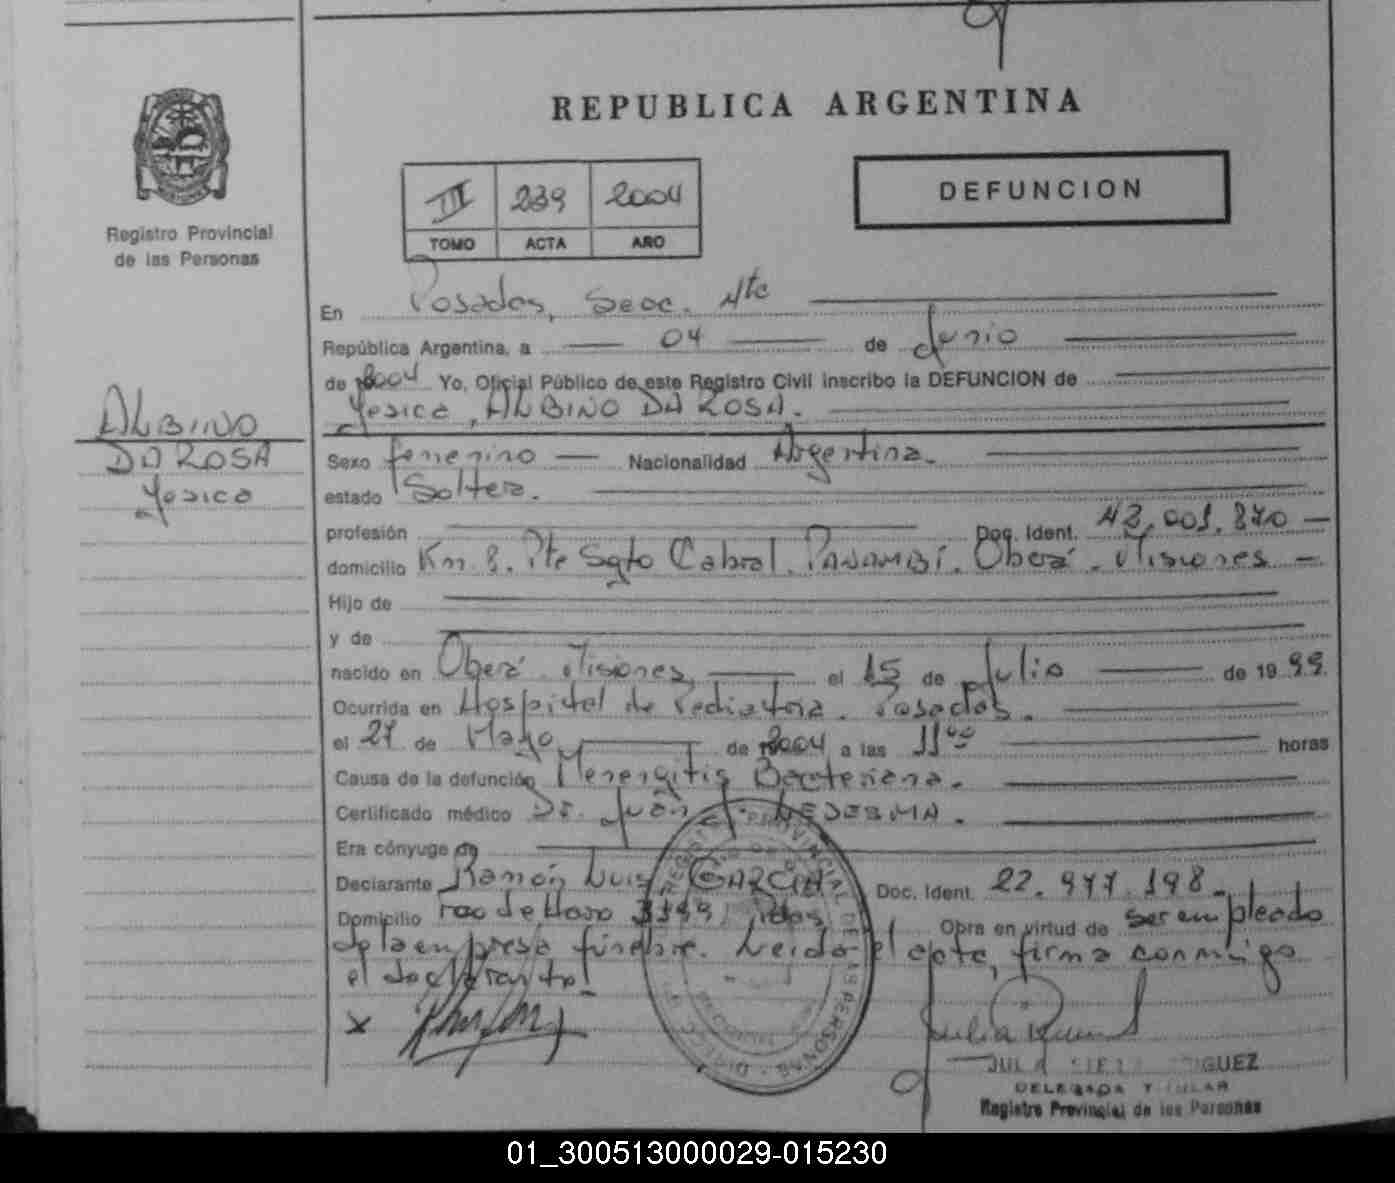 REPUBLICA ARGENTINA
III 239 2004
TOMO ACTA AÑO
DEFUNCION
Registro Provincial
de las Personas
ALBINO
DA ROSA
Yesica
En Posadas, Secc. 4ta
República Argentina, a 04 de Junio
de 2004 Yo, Oficial Público de este Registro Civil inscribo la DEFUNCION de
Yesica, ALBINO DA ROSA.
Sexo femenino Nacionalidad Argentina.
estado Soltera.
profesión Doc. Ident. 42.001.870
domicilio Km. 8. Pte Sgto Cabral. PANAMBÍ. Oberá. Misiones
Hijo de
y de
nacido en Oberá Misiones, el 15 de Julio de 1999.
Ocurrida en Hospital de Pediatría. Posadas.
el 27 de Mayo de 2004 a las 11 00 horas
Causa de la defunción Menengitis Bacteriana.
Certificado médico Dr. Juan LEDESMA.
Era cónyuge de
Declarante Ramón Luis GARCIA Doc. Ident. 22.977.198
Domicilio 3399 Pdas Obra en virtud de ser empleado
de la empresa fúnebre. Leida el acta, firma conmigo
el declarante.
x
DELEGADA TITULAR
Registro Provincial de las Personas
01_300513000029-015230